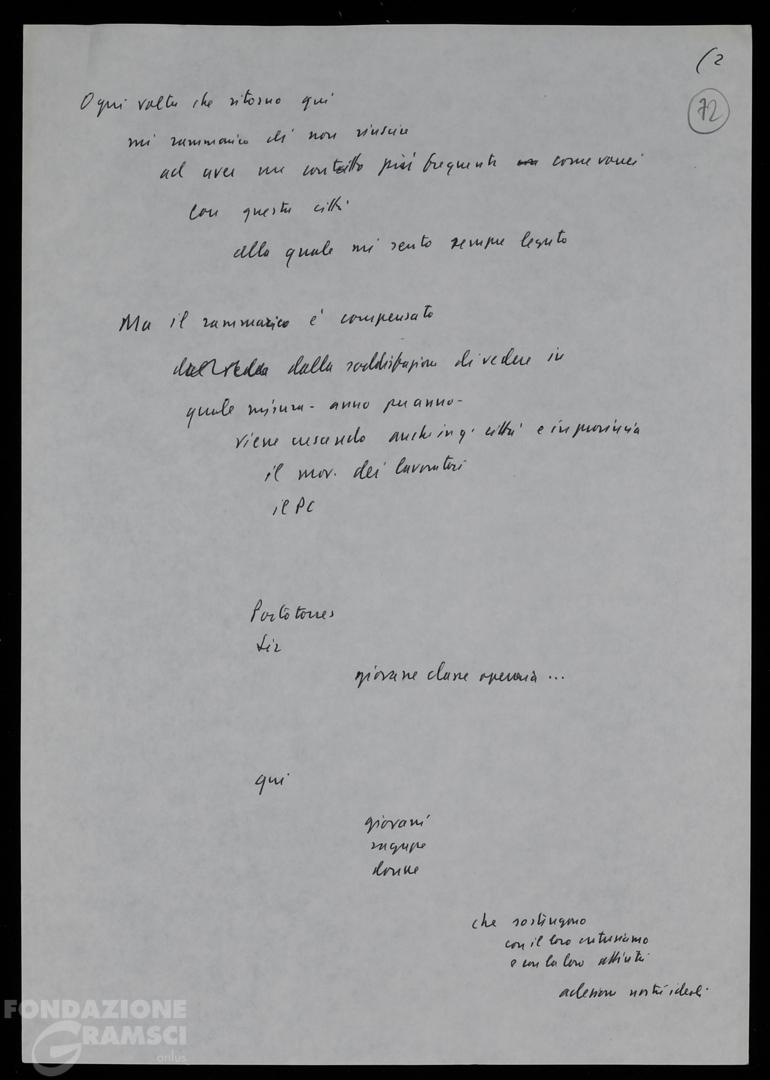 (2
72
Ogni volta che ritorno qui
mi rammarico di non riuscire
ad aver un contatto più frequente come vorrei
con questa città
alla quale mi sento sempre legato
Ma il rammarico è compensato
dalla soddisfazione di vedere in
quale misura - anno per anno -
viene crescendo anche in q. città e in provincia
il mov. dei lavoratori
il PC
Portotorres
Sir
giovane classe operaia ...
qui
giovani
ragazze
donne
che sostengono
con il loro entusiasmo
e con la loro attività
adesione nostri ideali
FONDAZIONE
GRAMSCI
onlus